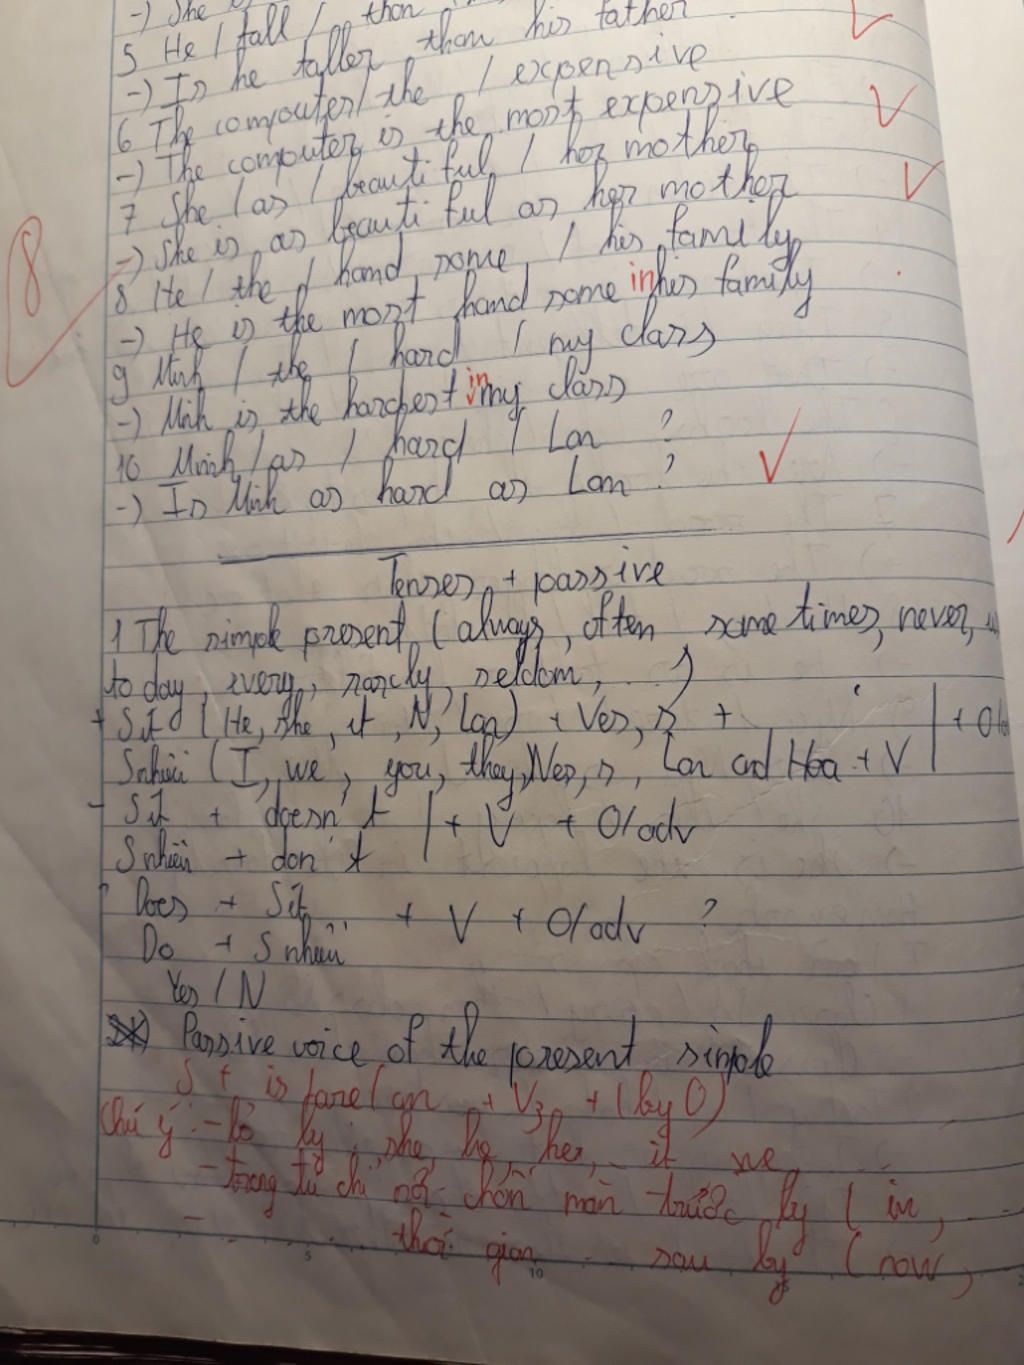 -) She
5 He / tall / than
-) Is he taller than his father
6 The computer / the / expensive
-) The computer is the most expensive
7 She / as / beautiful / her mother
-) She is as beautiful as her mother
8 He / the / hand some / his family
-) He is the most hand some in his family
9 Minh / the / hard / my class
-) Minh is the hardest in my class
10 Minh / as / hard / Lan ?
-) Is Minh as hard as Lan ?
8
Tenses + passive
1 The simple present (always, often some times, never,
to day, every, rarely, seldom, ...)
+ S ít (He, she, it, N, Lan) + Ves, s +
S nhiều (I, we, you, they, Nes, s, Lan and Hoa + V | + O/
- S ít + doesn't | + V + O/adv
S nhiều + don't
? Does + S ít + V + O/adv ?
Do + S nhiều
Yes / N
Passive voice of the present simple
S + is / are / am + V3 + (by O)
Chú ý : - bỏ by : she, he, her, it we
- trạng từ chỉ nơi chốn mang trước by ( in,
- thời gian sau by ( now,
0 5 10 15